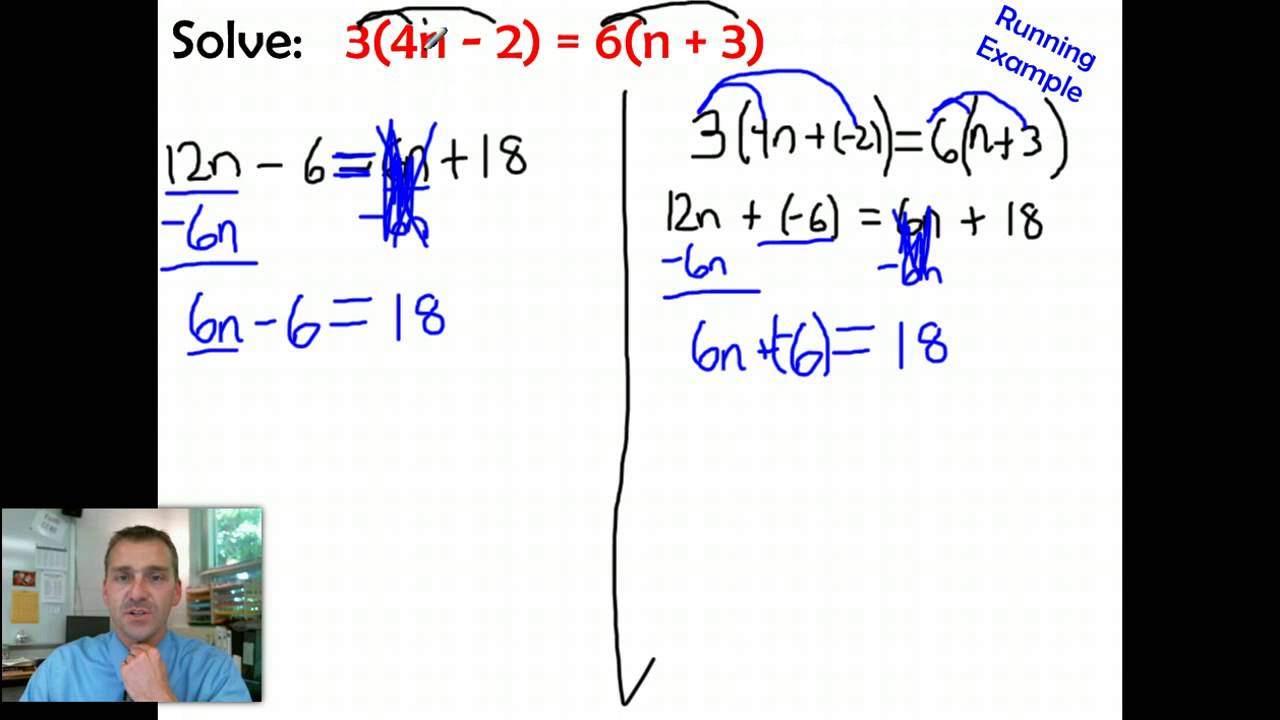 Solve: 3(4n - 2) = 6(n + 3)
Running
Example
12n - 6 = 6n + 18
-6n -6n
6n - 6 = 18
3(4n + (-2)) = 6(n + 3)
12n + (-6) = 6n + 18
-6n -6n
6n + (-6) = 18